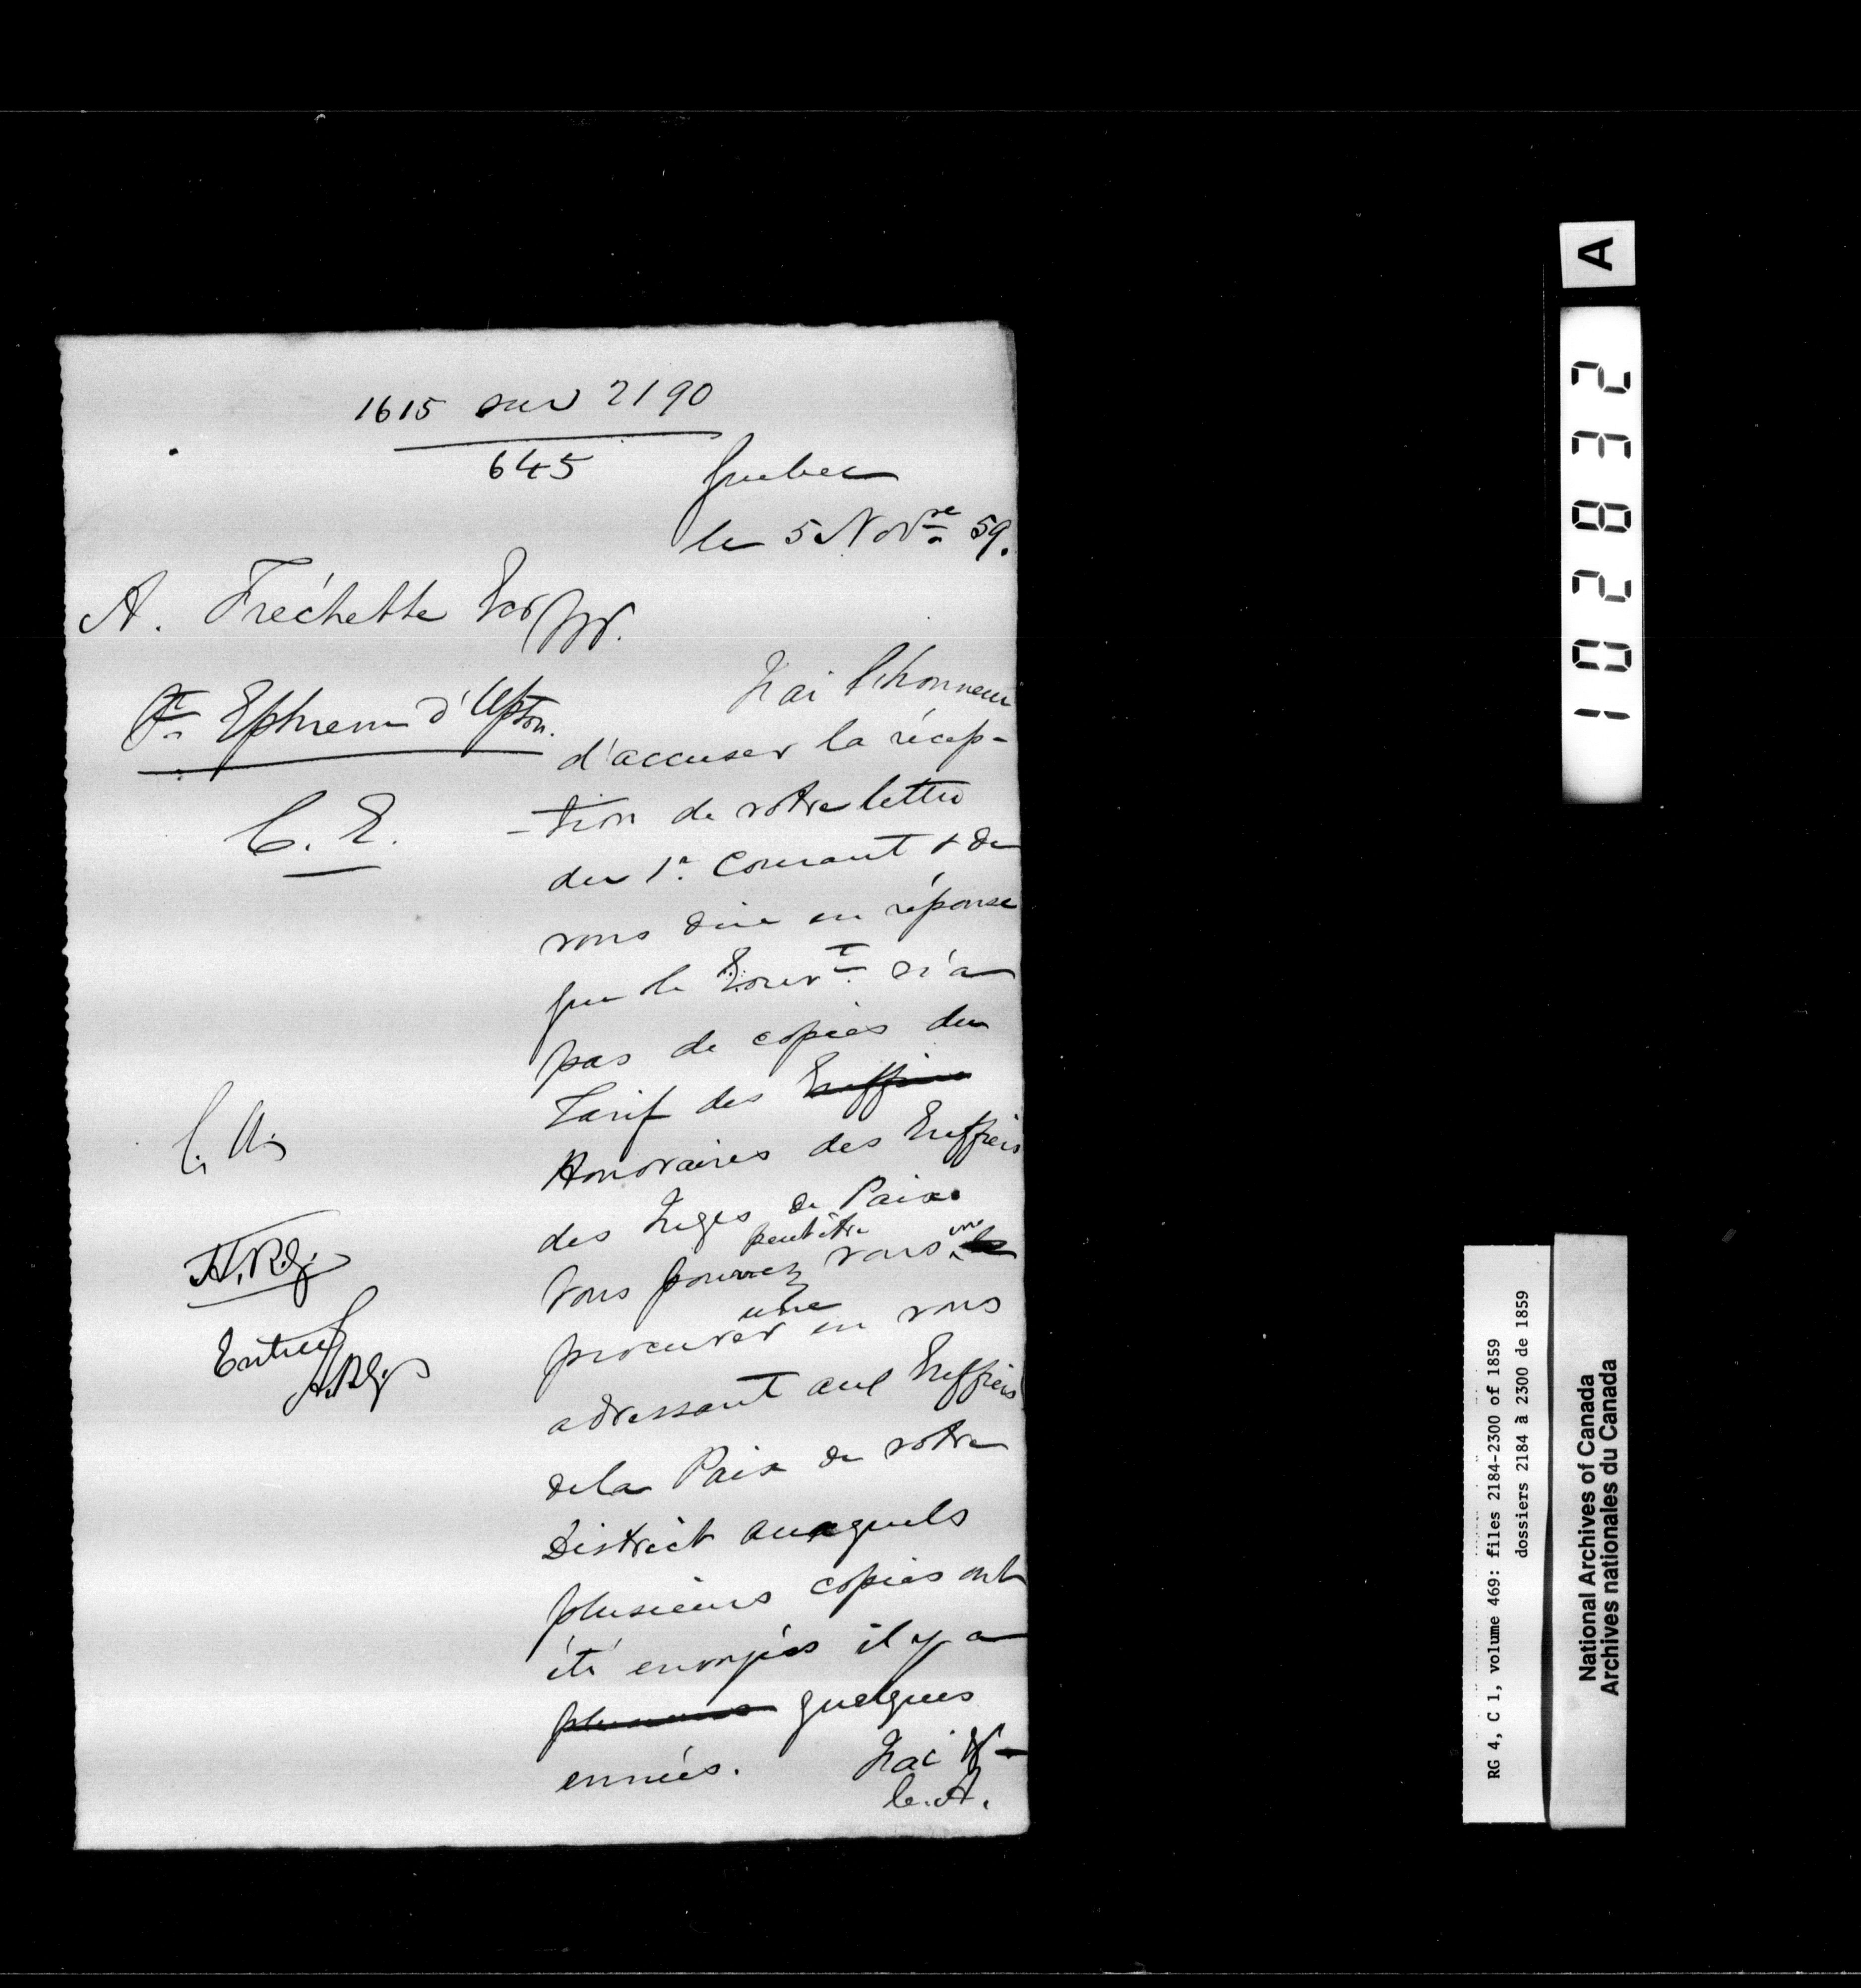 1615 sur 2190
645
Quebec
le 5 Novre 59.
A. Fréchette Ecr
St Ephrem d'Upton.
C. E.
J'ai l'honneur
d'accuser la récep-
-tion de votre lettre
du 1r. Courant & de
vous dire en réponse
que le Gouvt. n'a
pas de copies du
Tarif des Greffiers
Honoraires des Greffiers
des Juges de Paix.
Vous pourrez peut être vous en
procurer une en vous
adressant aux Greffiers
de la Paix de votre
District auxquels
plusieurs copies ont
été envoyées il y a
plusieurs quelques
années.
J'ai &
C. A.
Entred
A
102832
RG 4, C 1, volume 469: files 2184-2300 of 1859
dossiers 2184 à 2300 de 1859
National Archives of Canada
Archives nationales du Canada